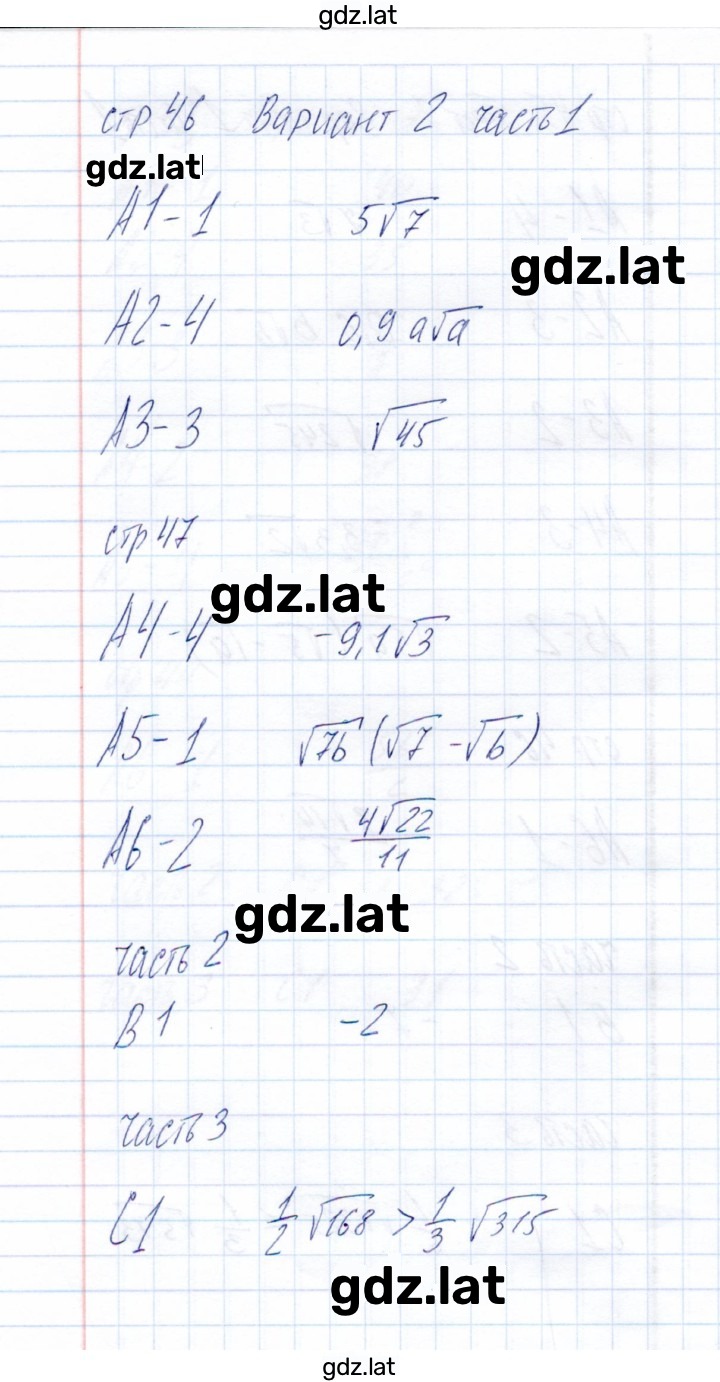 gdz.lat
стр 46 Вариант 2 часть 1
gdz.lat
А1-1 5√7
gdz.lat
А2-4 0,9 a√a
А3-3 √45
стр 47
gdz.lat
А4-4 -9,1√3
А5-1 √76 (√7 -√6)
А6-2 4√22/11
gdz.lat
часть 2
В 1 -2
часть 3
С1 1/2 √168 > 1/3 √315
gdz.lat
gdz.lat